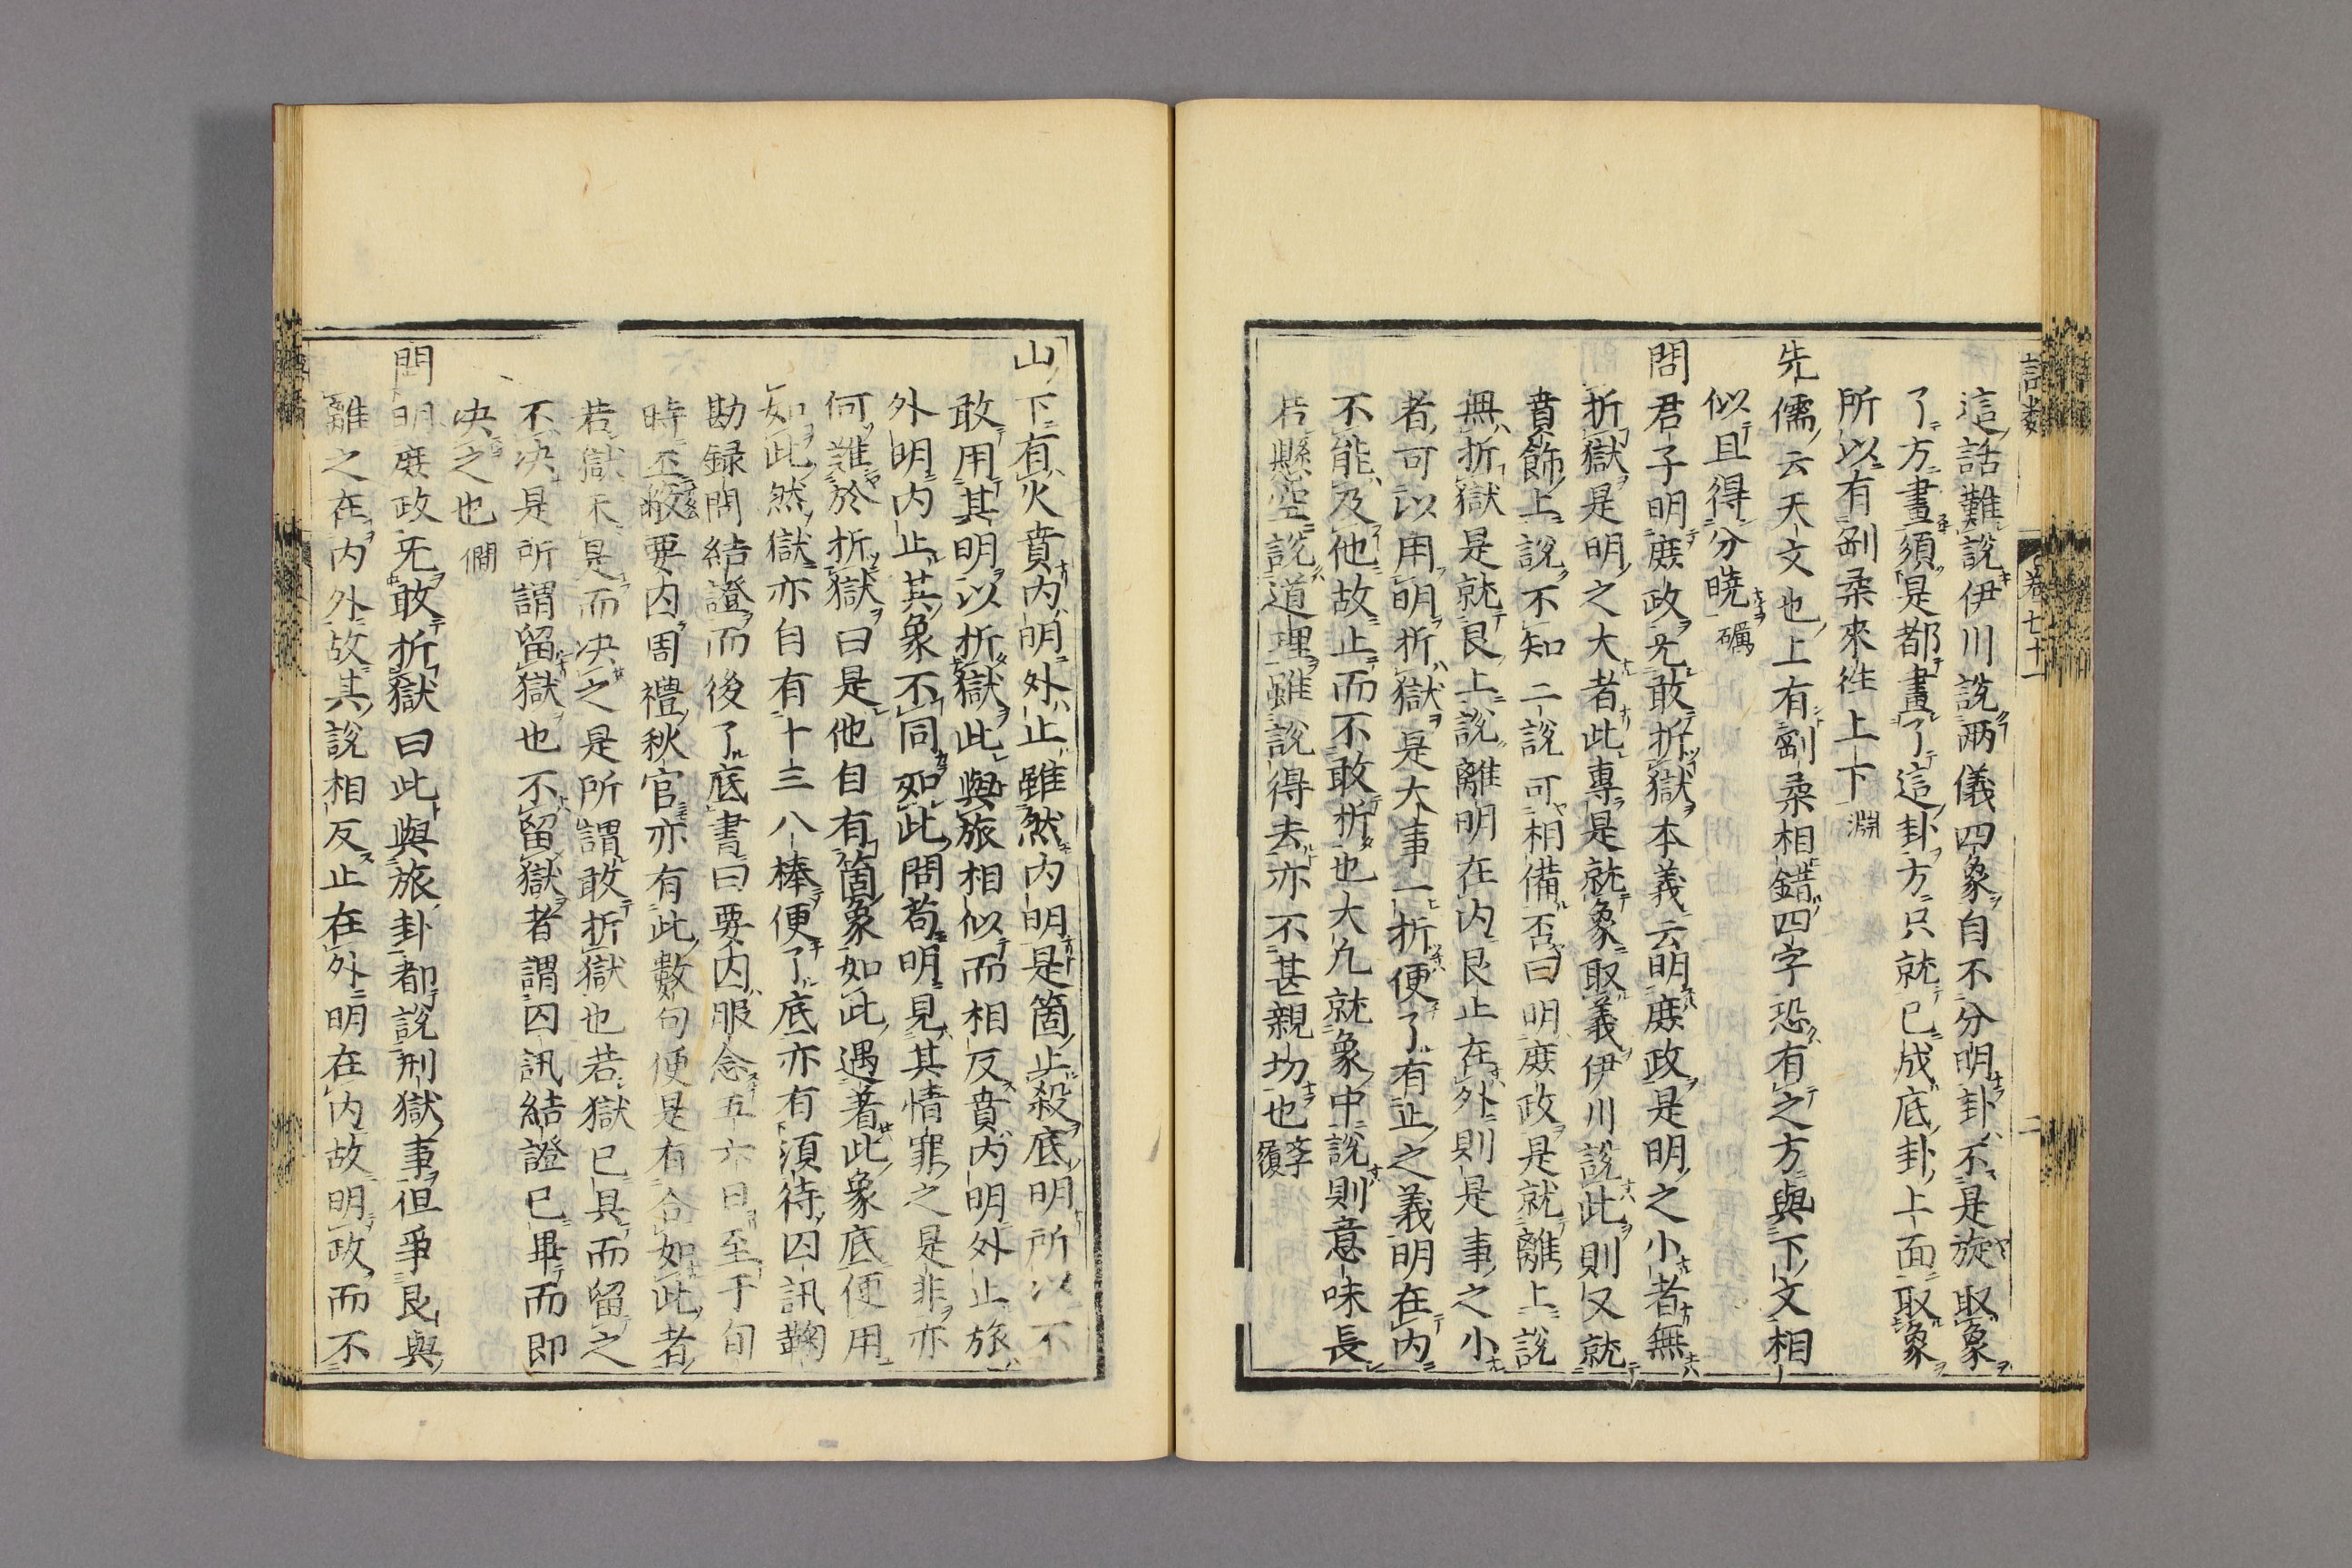 這話難說伊川說兩儀四象自不分明卦不是旋取象
了方畫須是都畫了這卦方只就已成底卦上面取象
所以有剛柔來往上下 淵
先儒云天文也上有剛柔相錯四字恐有之方與下文相
似且得分曉 礪
問君子明庻政无敢折獄本義云明庻政是明之小者無
折獄是明之大者此專是就象取義伊川說此則又就
賁飾上說不知二說可相備否曰明庻政是就離上說
無折獄是就艮上說離明在内艮止在外則是事之小
者可以用明折獄是大事一折便了有止之義明在内
不能及他故止而不敢折也大凡就象中說則意味長
若懸空說道理雖說得去亦不甚親切也 學履
卷七十一
二
山下有火賁内明外止雖然内明是箇止殺底明所以不
敢用其明以折獄此與旅相似而相反賁内明外止旅
外明内止其象不同如此問苟明見其情罪之是非亦
何難於折獄曰是他自有箇象如此遇著此象底便用
如此然獄亦自有十三八棒便了底亦有須待囚訊鞫
勘録問結證而後了底書曰要囚服念五六日至于旬
時丕蔽要囚周禮秋官亦有此數句便是有合如此者
若獄未是而决之是所謂敢折獄也若獄已具而留之
不决是所謂留獄也不留獄者謂囚訊結證已畢而即
决之也 僩
問明庻政无敢折獄曰此與旅卦都說刑獄事但爭艮與
離之在内外故其說相反止在外明在内故明政而不